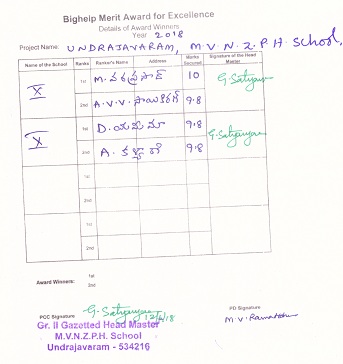 Bighelp Merit Award for Excellence
Details of Award Winners
Year 2018
Project Name: UNDRAJAVARAM, M.V.N.Z.P.H School,
Name of the School Ranks Ranker's Name Address Marks Secured Signature of the Head Master
X 1st M. 10 G. Satyanarayana
2nd A.V.V. సాయికిరణ్ 9.8
X 1st D. యమునా 9.8 G. Satyanarayana
2nd A. 9.8
1st
2nd
1st
2nd
Award Winners: 1st
2nd
PCC Signature PD Signature
Gr. II Gazetted Head Master
M.V.N.Z.P.H. School
Undrajavaram - 534216